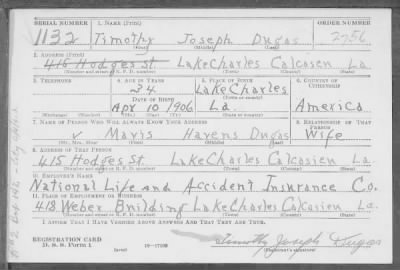 SERIAL NUMBER 1. NAME (Print) ORDER NUMBER
1132 Timothy Joseph Dugas 2756
(First) (Middle) (Last)
2. ADDRESS (Print)
415 Hodges St. Lake Charles Calcasieu La.
(Number and street or R. F. D. number) (Town) (County) (State)
3. TELEPHONE 4. AGE IN YEARS 5. PLACE OF BIRTH 6. COUNTRY OF CITIZENSHIP
34 Lake Charles
DATE OF BIRTH (Town or county)
Apr 10 1906 La. America
(Exchange) (Number) (Mo.) (Day) (Yr.) (State or country)
7. NAME OF PERSON WHO WILL ALWAYS KNOW YOUR ADDRESS 8. RELATIONSHIP OF THAT PERSON
Mavis Havens Dugas Wife
(Mr., Mrs., Miss) (First) (Middle) (Last)
9. ADDRESS OF THAT PERSON
415 Hodges St. Lake Charles Calcasieu La.
(Number and street or R. F. D. number) (Town) (County) (State)
10. EMPLOYER'S NAME
National Life and Accident Insurance Co.
11. PLACE OF EMPLOYMENT OR BUSINESS
418 Weber Building Lake Charles Calcasieu La.
(Number and street or R. F. D. number) (Town) (County) (State)
I AFFIRM THAT I HAVE VERIFIED ABOVE ANSWERS AND THAT THEY ARE TRUE.
REGISTRATION CARD
D. S. S. Form 1 (over) 16—17105
Timothy Joseph Dugas
(Registrant's signature)